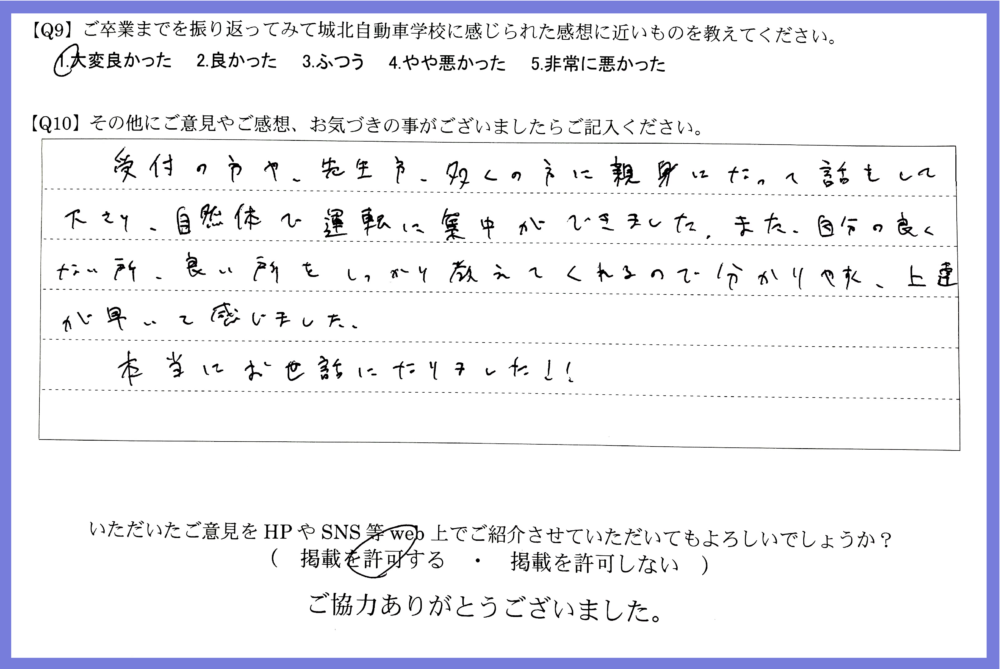 【Q9】ご卒業までを振り返ってみて城北自動車学校に感じられた感想に近いものを教えてください。
1.大変良かった 2.良かった 3.ふつう 4.やや悪かった 5.非常に悪かった
【Q10】その他にご意見やご感想、お気づきの事がございましたらご記入ください。
受付の方や、先生方、多くの方に親身になって話をして
下さり、自然体で運転に集中ができました。また、自分の良く
ない所、良い所をしっかり教えてくれるので分かりやすく、上達
が早いで感じました。
本当にお世話になりました!!
いただいたご意見をHPやSNS等web上でご紹介させていただいてもよろしいでしょうか?
( 掲載を許可する ・ 掲載を許可しない )
ご協力ありがとうございました。